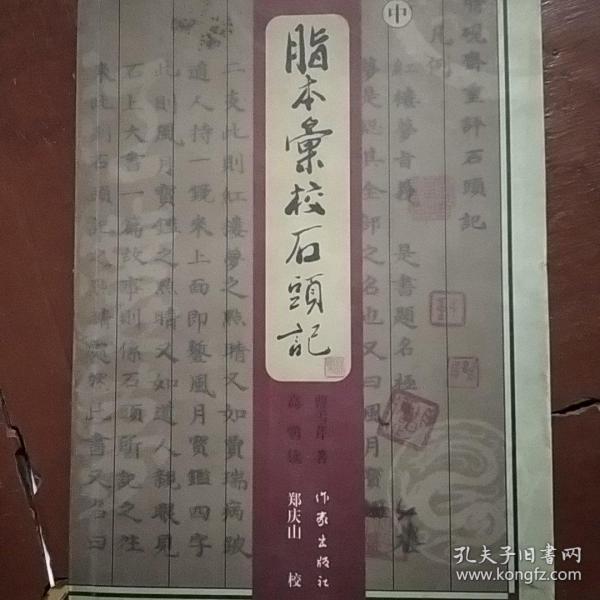 中
脂本彙校石頭記
曹雪芹 著
高鶚 续
郑庆山 校
作家出版社
脂硯齋重評石頭記
凡例
紅樓夢旨義 是書題名極
夢是總其全部之名也又曰風月
二支此則紅樓夢之點睛又如賈瑞病跛
道人持一鏡來上面即鏨風月寶鑑四字
此則風月寶鑑之點睛又如道人親眼見
石上大書一篇故事則係石頭所記之往
來此則石頭記之點睛處然此書又名曰
孔夫子旧书网
www.kongfz.com